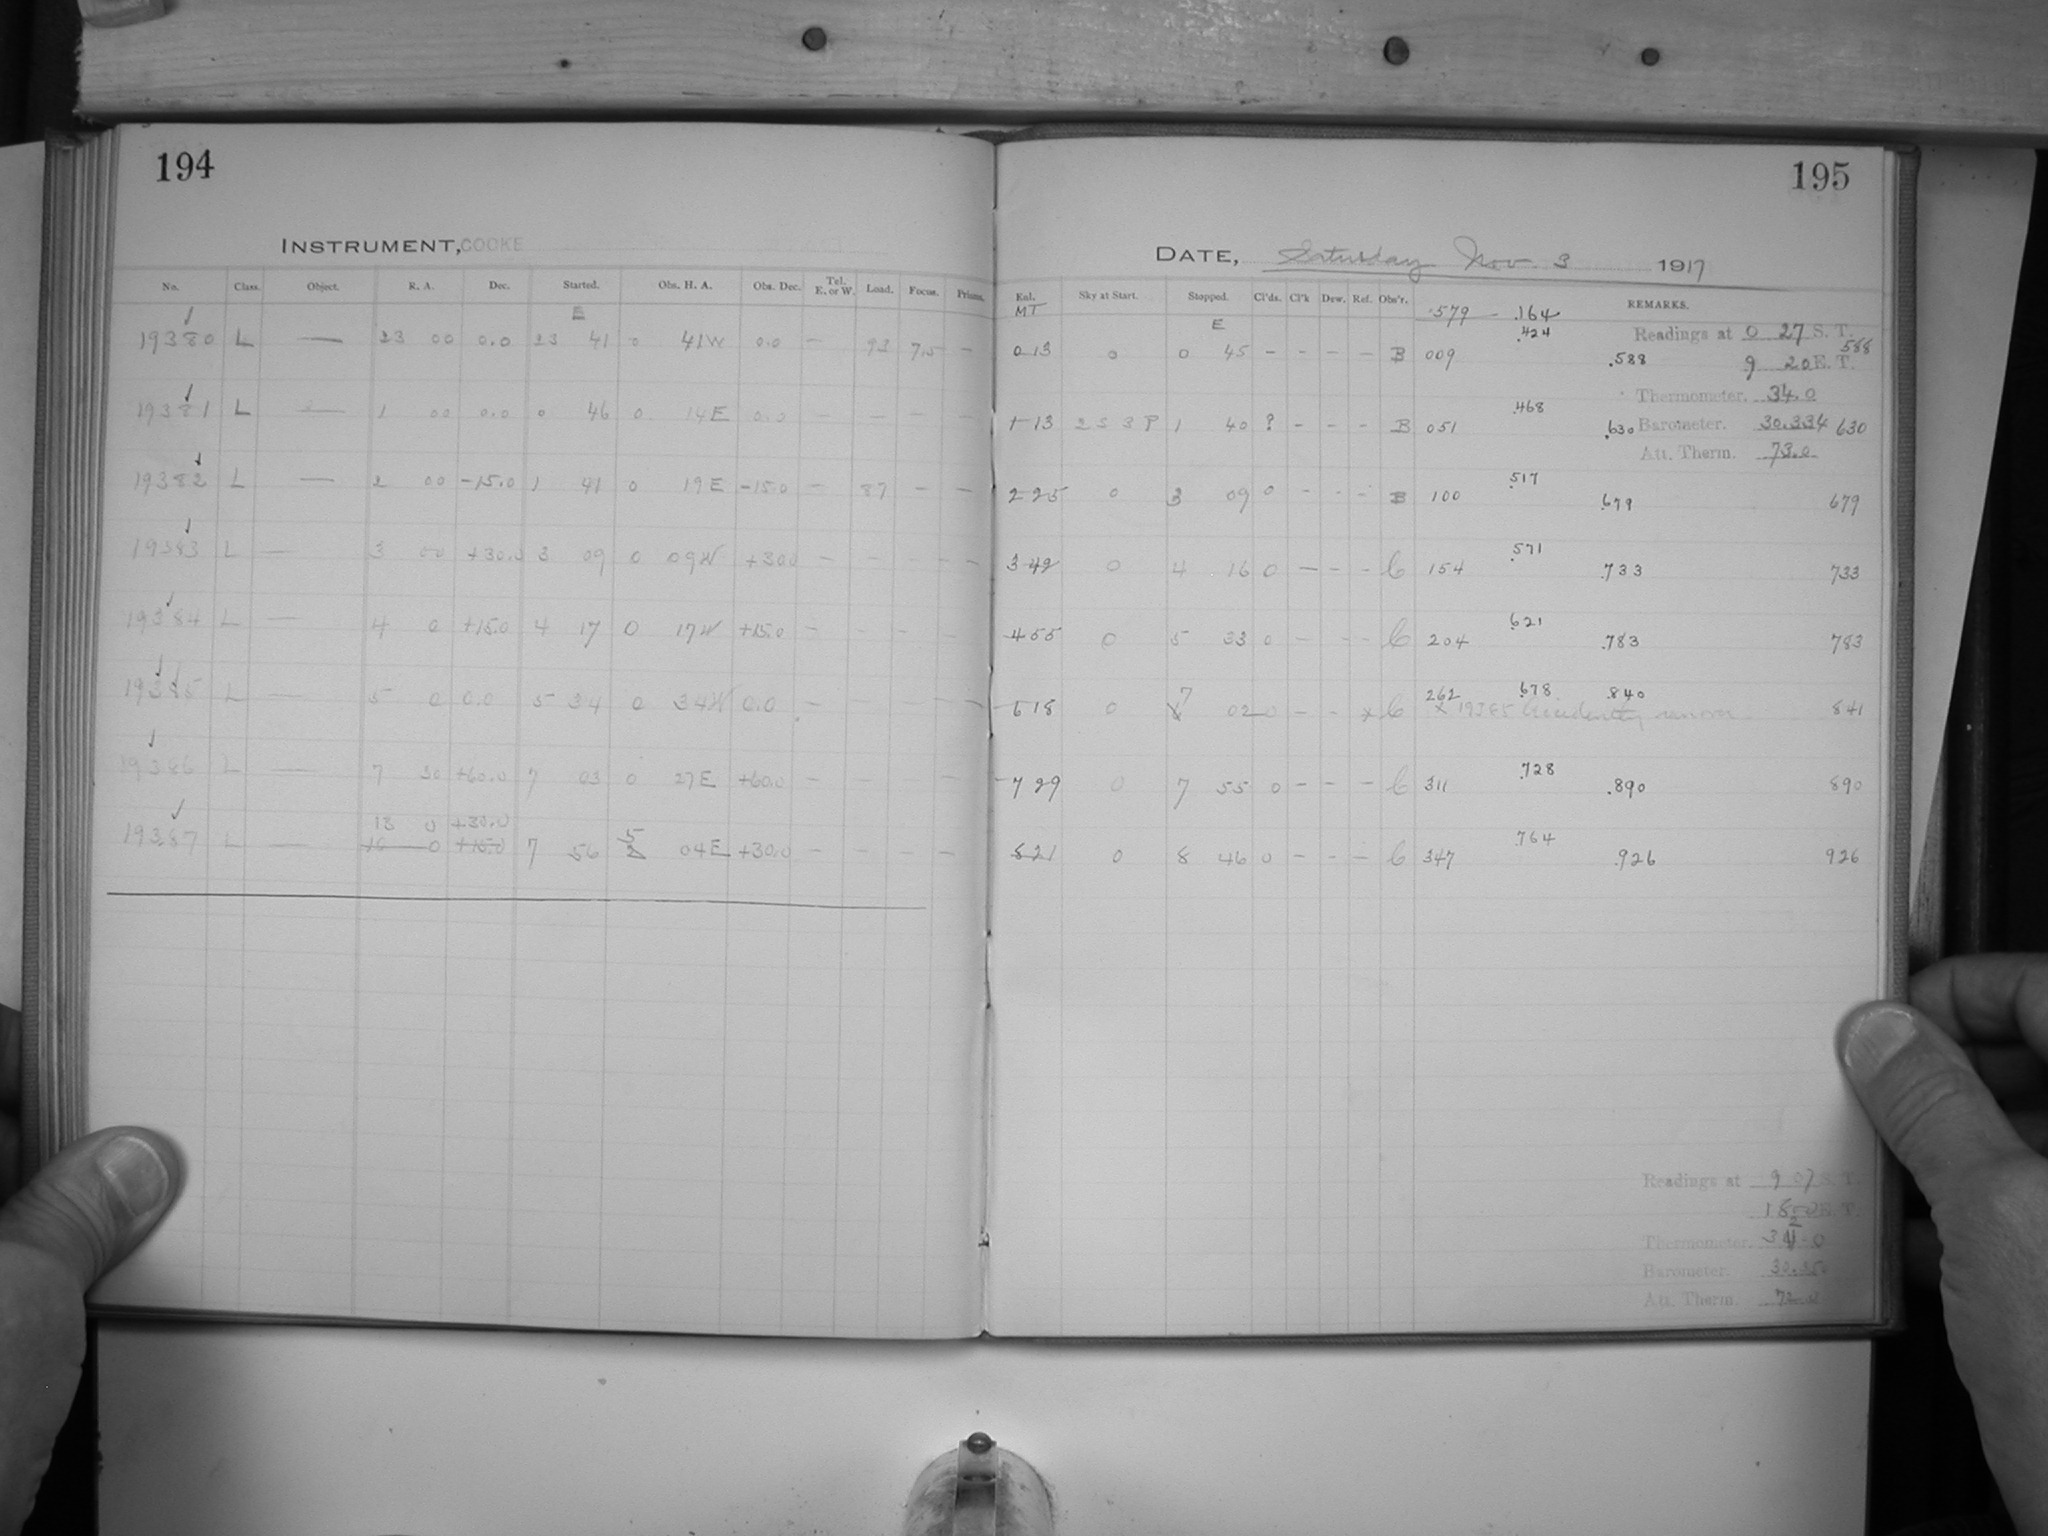 194
INSTRUMENT, COOKE
No. Class. Object. R. A. Dec. Started. Obs. H. A. Obs. Dec. Tel. E. or W. Load. Focus. Prisms.
E
19380 L — 23 00 0.0 23 41 0 41W 0.0 — 93 7.5 —
19381 L — 1 00 0.0 0 46 0 14E 0.0 — — — —
19382 L — 2 00 -15.0 1 41 0 19E -15.0 — 87 — —
19383 L — 3 00 +30.0 3 09 0 09W +30.0 — — — —
19384 L — 4 0 +15.0 4 17 0 17W +15.0 — — — —
19385 L — 5 0 0.0 5 34 0 34W 0.0 — — — —
19386 L — 7 30 +60.0 7 03 0 27E +60.0 — — — —
13 0 +30.0
19387 L — 10 0 +15.0 7 56 5 04E +30.0 — — — —
195
DATE, Saturday Nov. 3 1917
Ext. Sky at Start. Stopped. Cl'ds. Cl'k Dew. Ref. Obs'r. REMARKS.
MT E .579 - .164
.424 Readings at 0 27 S. T.
0 13 0 0 45 - - - - B 009 .588 588
9 20 E. T.
Thermometer. 34.0
.468
1 13 2 S 3 P 1 40 ? - - - B 051 .630 Barometer. 30.334 630
Att. Therm. 73.0
.517
2 25 0 3 09 0 - - - B 100 .679 679
.571
3 42 0 4 16 0 - - - C 154 .733 733
.621
4 55 0 5 33 0 - - - C 204 .783 783
262 .678 .840
6 18 0 7 02 0 - - x C x 19385 Accidently 841
.728
7 29 0 7 55 0 - - - C 311 .890 890
.764
8 21 0 8 46 0 - - - C 347 .926 926
Readings at 9 07 S. T.
18 E. T.
Thermometer.
Barometer.
Att. Therm.